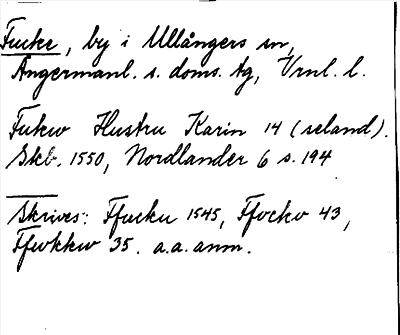 Fucke, by i Ullångers sn,
Ångermanl. s. doms. tg, Vrnl. l.
Fukw Hustru Karin 14 (seland).
Skb. 1550, Nordlander 6 s. 194
Skrives: Ffucku 1545, Ffockv 43,
Ffwkkw 35. a.a. anm.